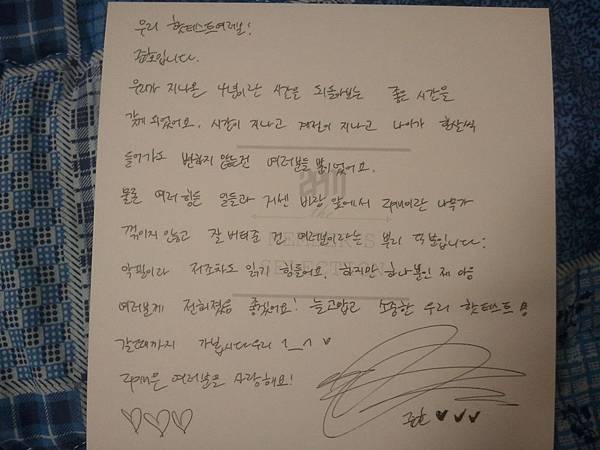 우리 핫테스트여러분!
준호입니다.
우리가 지나온 4년이란 시간을 되돌아보는 좋은 시간을
갖게 되었어요. 시간이 지나고 계절이 지나고 나이가 한살씩
들어가도 변하지 않는건 여러분들 뿐이었어요.
물론 여러 힘든 일들과 거센 바람 앞에서 2PM이란 나무가
꺾이지 않고 잘 버텨준 건 여러분이라는 뿌리 덕분입니다.
악필이라 저조차도 읽기 힘들어요. 하지만 하나뿐인 제 마음
여러분께 전해졌음 좋겠어요! 늘 고맙고 소중한 우리 핫테스트
갈때까지 가봅시다우리 ^_^ ♥
2PM은 여러분을 사랑해요!
♡♡♡
준호 ♥♥♥